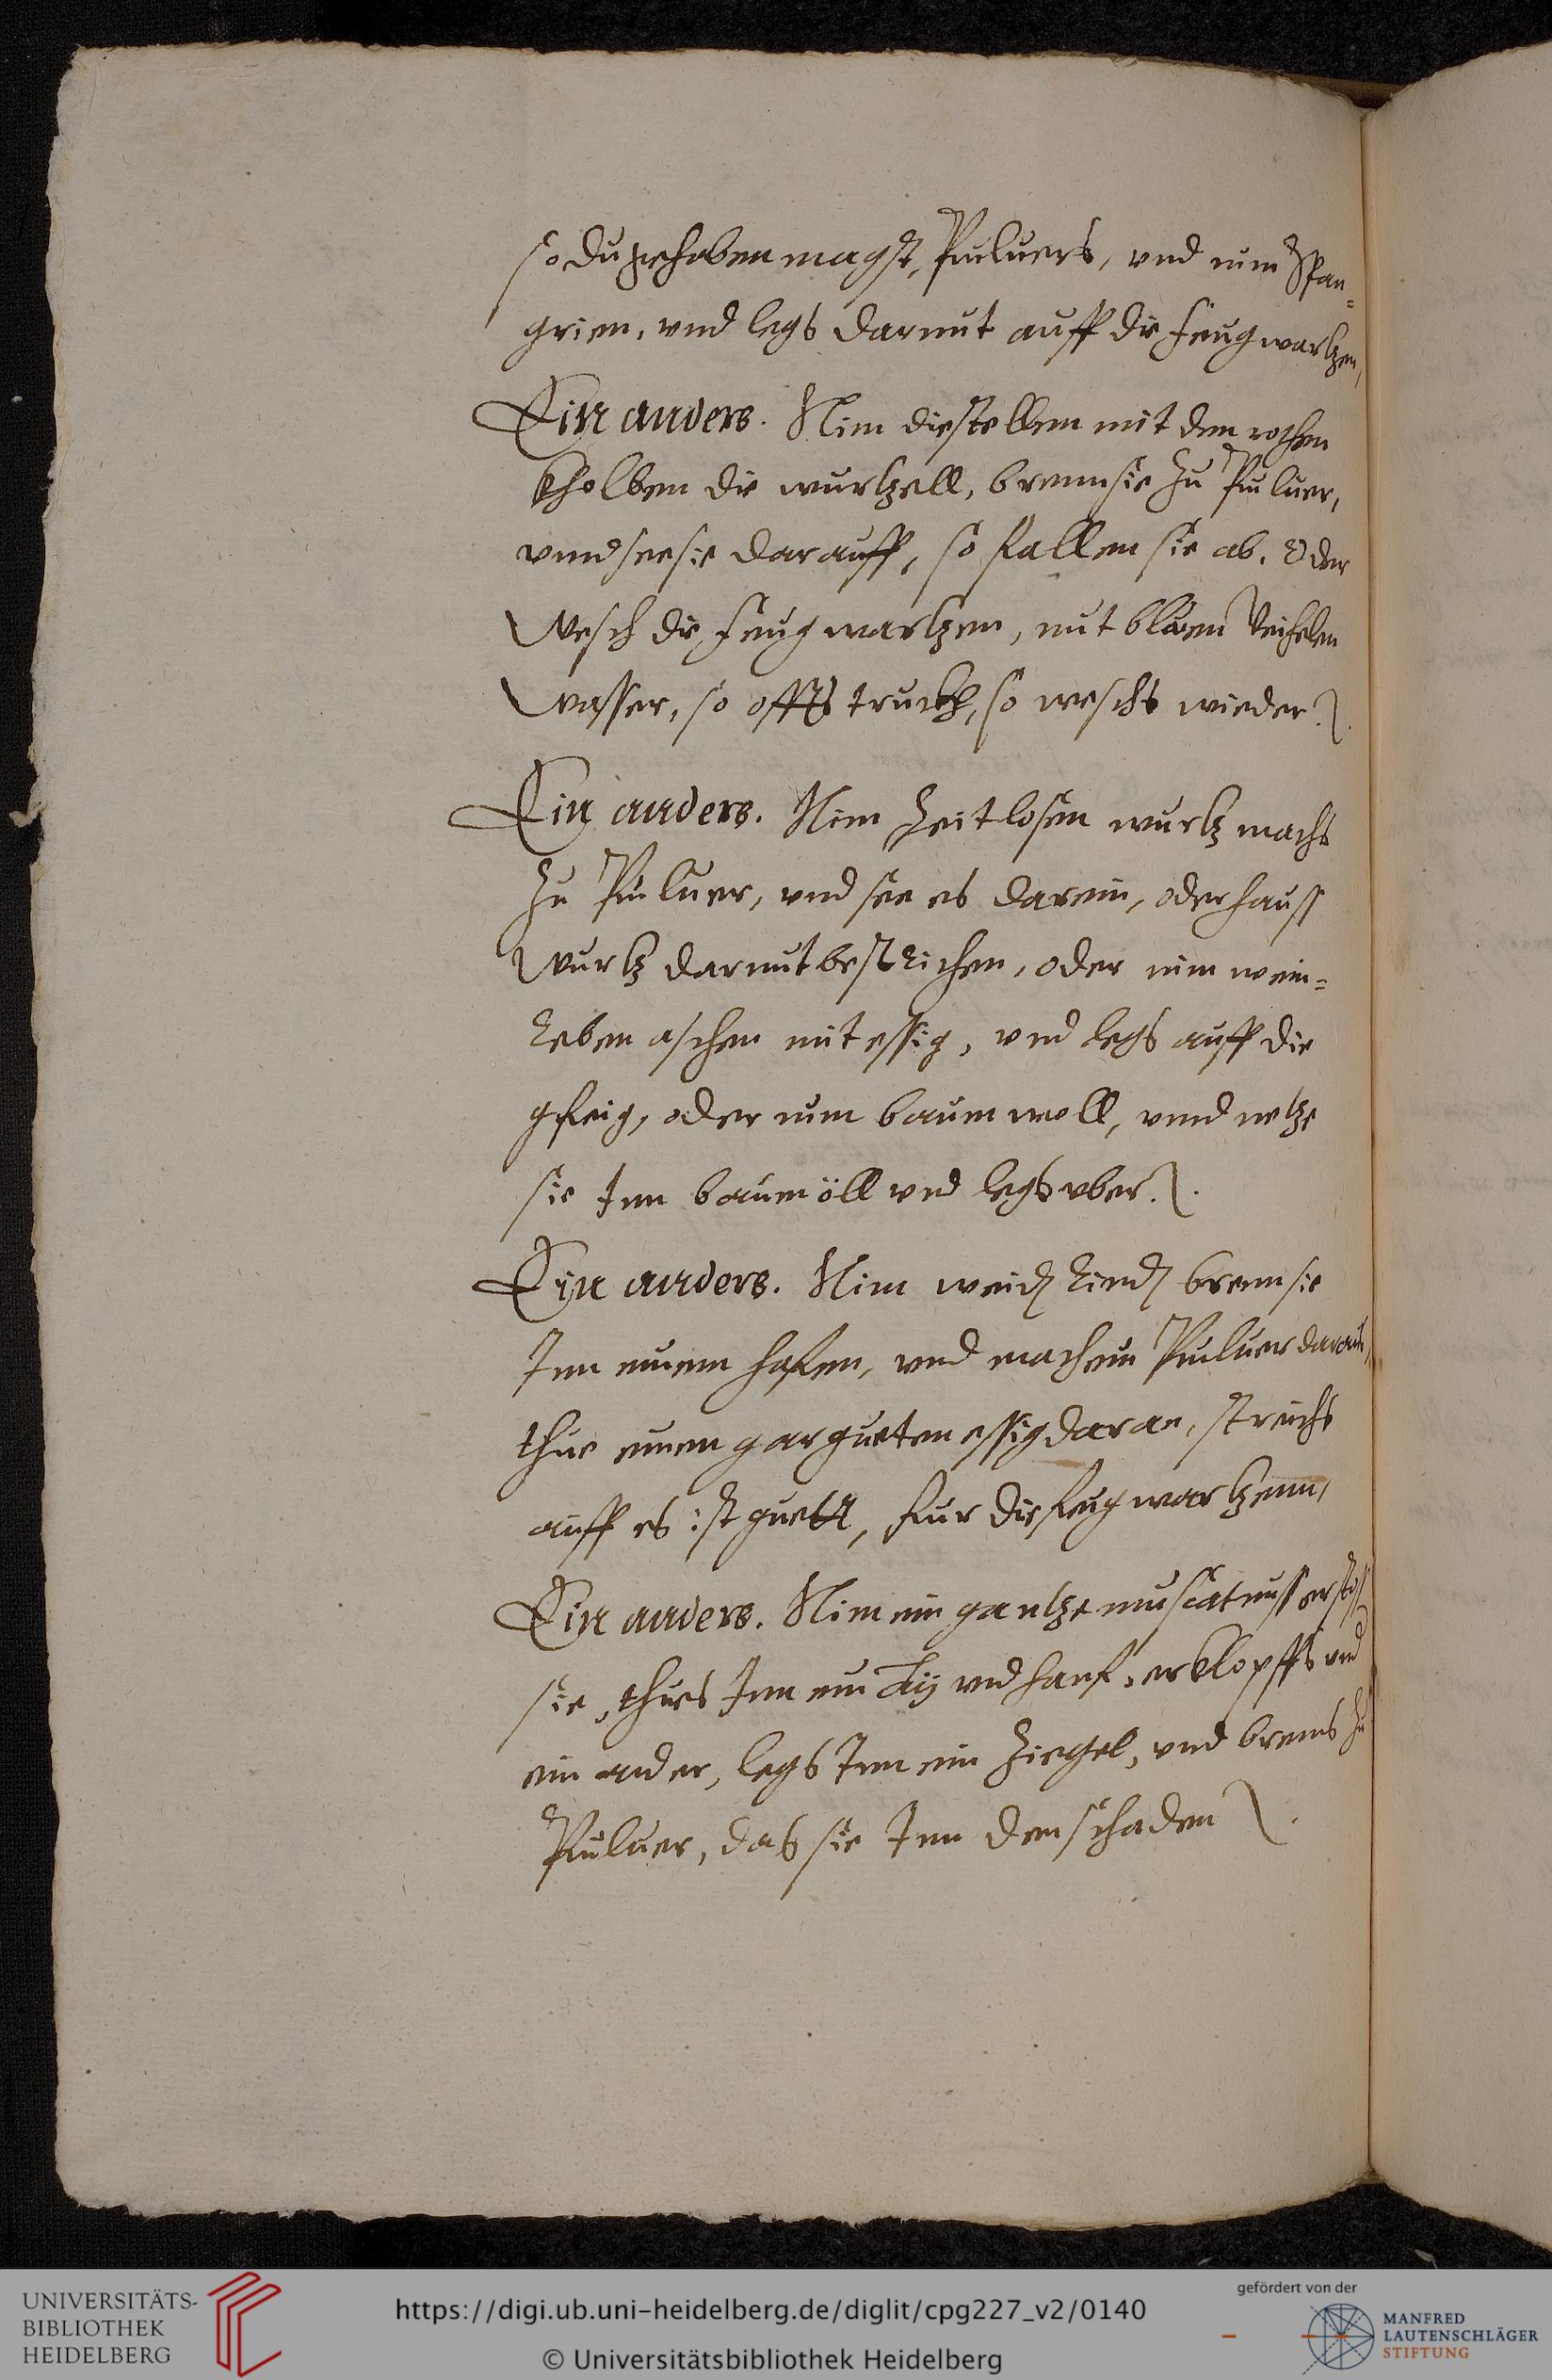 so du gehaben magst, Puluers, vnd nim Span-
grien, vnd legs darmit auff die feugwartzen,
Ein anders. Nim die stellen mit den rothen
kholben die wurtzell, brenn sie zu Puluer,
vnnd see sie darauff, so fallen sie ab. Oder
Wesch die feugwartzen, mit blawen Veihelen
Wasser, so offts truckh, so weschs wieder.
Ein anders. Nim Zeitlosen wurtz machs
zu Puluer, vnd see es darein, oder hauss
Wurtz darmit bestrichen, oder nim wein-
reben aschen mit essig, vnd legs auff die
gfeig, oder nim baumwoll, vnnd netze
sie Inn baumöll vnd legs vber.
Ein anders. Nim weidj rindj brenn sie
Inn einem hafen, vnd mach ein Puluer daraus,
thue einen gar gueten essig daran, streichs
auff es ist guett, fur die feugwartzenn,
Ein anders. Nim ein gantze muscatnuss erstoss
sie, thues Inn ein Aÿ vnd hanf, erklopffs vnd
ein ander, legs Inn ein Ziegel, vnd brenns zu
Puluer, das sie Inn den schaden
UNIVERSITÄTS-
BIBLIOTHEK
HEIDELBERG
https://digi.ub.uni-heidelberg.de/diglit/cpg227_v2/0140
© Universitätsbibliothek Heidelberg
gefördert von der
MANFRED
LAUTENSCHLÄGER
STIFTUNG